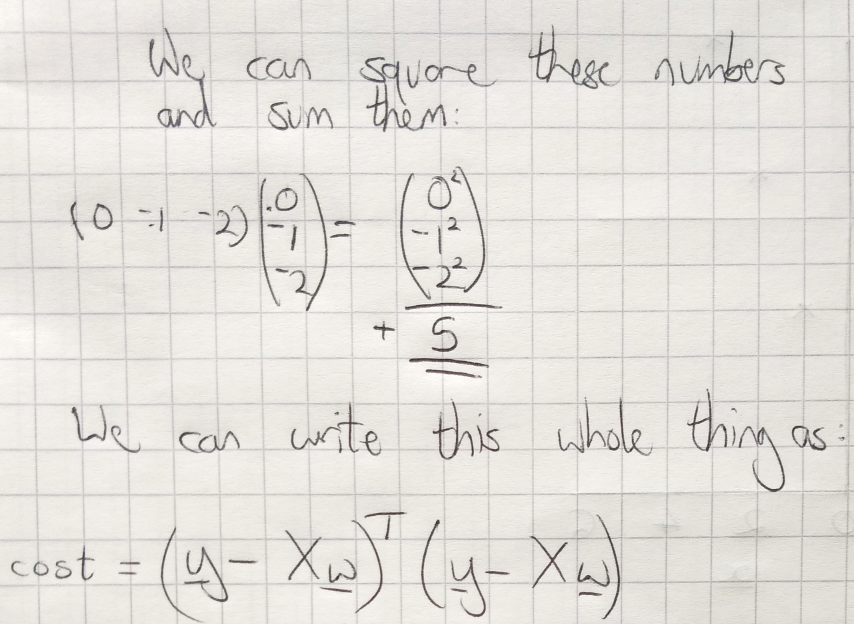 We can square these numbers
and sum them:
(0 -1 -2) (0 -1 -2) = (0² -1² -2²)
+ 5
We can write this whole thing as:
cost = (y - Xw)ᵀ (y - Xw)